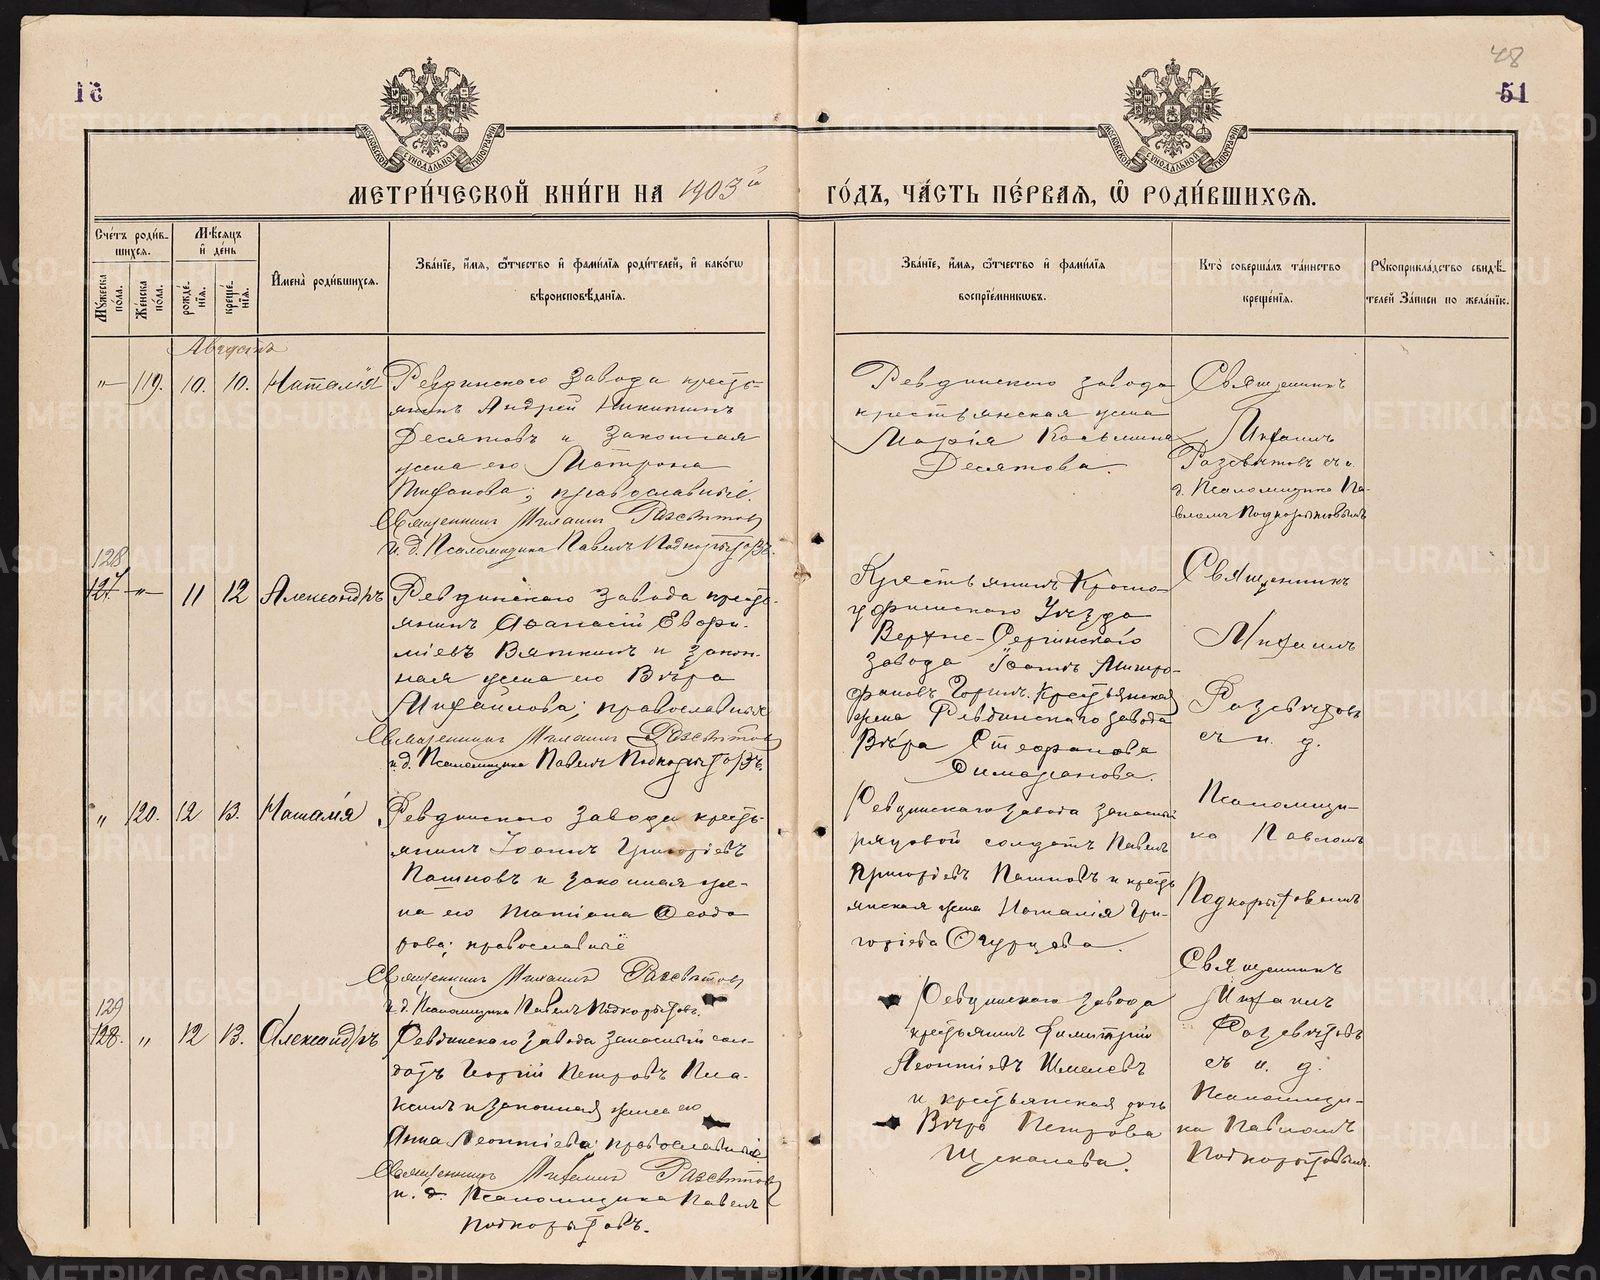 16
48
51
МЕТРИ́ЧЕСКОЙ КНИ́ГИ НА 1903й
ГО́ДЪ, ЧА́СТЬ ПЕ́РВАЯ, Ѿ РОДИ́ВШИХСЯ.
Сче́тъ роди́в-
шихся.
Му́жеска
по́ла.
Же́нска
по́ла.
Мѣ́сяцъ
и҆ де́нь
рожде́-
нїя.
креще́-
нїя.
И҆мена̀ роди́вшихся.
Зва́нїе, и҆́мя, ѻ҆́тчество и҆ фами́лїя роди́телей, и҆ како́гѡ
вѣроисповѣ́данїя.
Зва́нїе, и҆́мя, ѻ҆́тчество и҆ фами́лїя
воспрїе́мникѡвъ.
Кто̀ соверша́лъ та́инство
креще́нїя.
Рꙋкоприкла́дство свидѣ́-
телей За́писи по жела́нїю.
Августъ
"
119.
10.
10.
Наталія
Ревдинского завода кресть-
янинъ Андрей Никитинъ
Десятовъ и законная
жена его Матрона
православные.
Священникъ Михаилъ Разсвѣтовъ
и. д. Псаломщика Павелъ Подкорытовъ.
Ревдинского завода
крестьянская жена
Марія Козьмина
Десятова.
Священникъ
Михаилъ
Разсвѣтовъ съ и.
д. Псаломщика Па-
вломъ Подкорытовымъ
128
127.
"
11
12
Александръ
Ревдинского завода кресть-
янинъ Аѳанасій Евѳи-
міевъ Вяткинъ и закон-
ная жена его Вѣра
Михайлова; православные
Священникъ Михаилъ Разсвѣтовъ
и. д. Псаломщика Павелъ Подкорытовъ.
Крестьянинъ Красно-
уфимскаго Уѣзда
Верхне-Сергинскаго
завода Іоаннъ Митро-
фановъ крестьянская
жена Ревдинскаго завода
Вѣра Стефанова
Священникъ
Михаилъ
Разсвѣтовъ
съ и. д.
Псаломщи-
ка Павломъ
Подкорытовымъ
"
120.
12
13.
Наталія
Ревдинского завода кресть-
янинъ Іоаннъ Григоріевъ
Пашковъ и законная же-
на его Татіана Ѳеодо-
рова; православные
Священникъ Михаилъ Разсвѣтовъ
и. д. Псаломщика Павелъ Подкорытовъ.
Ревдинскаго завода запасный
рядовой солдатъ Павелъ
Григоріевъ Пашковъ и кресть-
янская жена Наталія Гри-
горіева Огурцова.
Священникъ
Михаилъ
Разсвѣтовъ
съ и. д.
Псаломщи-
ка Павломъ
Подкорытовымъ.
129
128.
"
12
13.
Александръ
Ревдинскаго завода запасный сол-
датъ Георгій Петровъ Пла-
ксинъ и законная жена его
Анна Леонтіева; православные.
Священникъ Михаилъ Разсвѣтовъ
и. д. Псаломщика Павелъ
Подкорытовъ.
Ревдинскаго завода
крестьянинъ Димитрій
Леонтіевъ Шмелевъ
и крестьянская дочь
Вѣра Петрова
Щекалева.